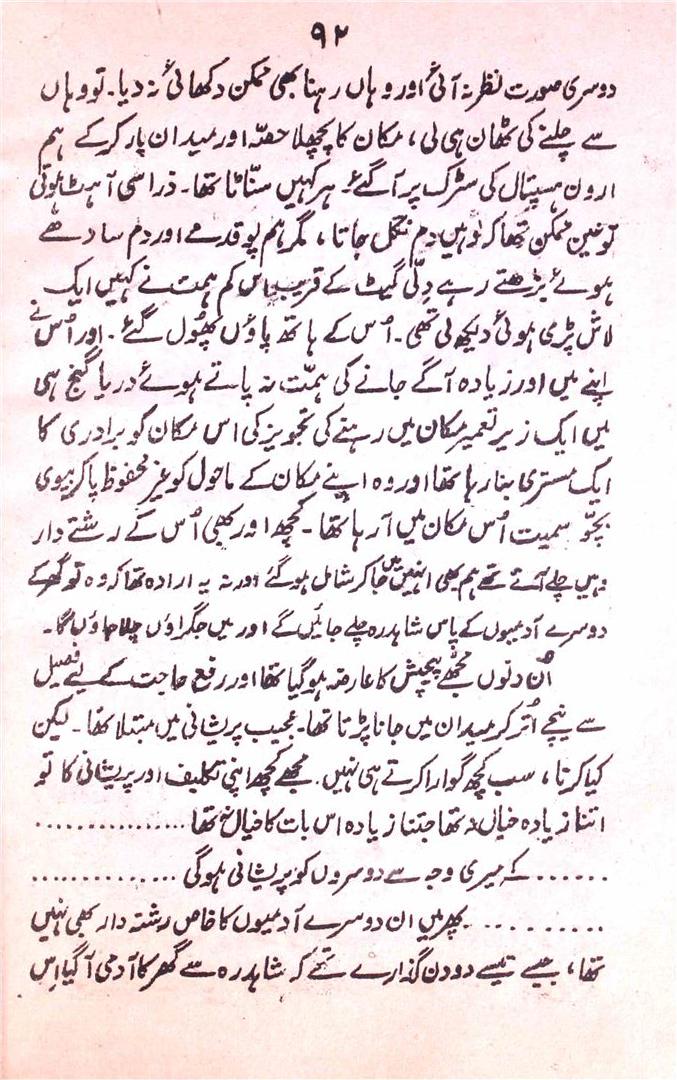 ۹۲
دوسری صورت نظر نہ آئی اور وہاں رہنا بھی ممکن دکھائی نہ دیا۔ تو وہاں
سے چلنے کی ٹھان ہی لی، مکان کا پچھلا حصّہ اور میدان پار کر کے ہم
ارون ہسپتال کی سڑک پر آگئے۔ ہر کہیں سنّاٹا تھا۔ ذرا سی آہٹ ہوتی
تو عین ممکن تھا کہ وہیں دم نکل جاتا، مگر ہم پو قدمے اور دم سادھے
ہوئے بڑھتے رہے دِلّی گیٹ کے قریب اس کم ہمت نے کہیں ایک
لاش پڑی ہوئی دیکھ لی تھی۔ اُس کے ہاتھ پاؤں پھُول گئے۔ اور اُس نے
اپنے میں اور زیادہ آگے جانے کی ہمّت نہ پاتے ہوئے دریا گنج ہی
میں ایک زیر تعمیر مکان میں رہنے کی تجویز کی اس مکان کو برادری کا
ایک مستری بنا رہا تھا اور وہ اپنے مکان کے ماحول کو غیر محفوظ پا کر بیوی
بچّو سمیت اُس مکان میں آ رہا تھا۔ کچھ اور بھی اُس کے رشتے دار
وہیں چلے آئے تھے ہم بھی انہیں میں جا کر شامل ہو گئے ورنہ یہ ارادہ تھا کہ وہ تو گھر کے
دوسرے آدمیوں کے پاس شاہدرہ چلے جائیں گے اور میں جگراؤں چلا جاؤں گا۔
اُن دنوں مجھے پیچش کا عارضہ ہو گیا تھا اور رفع حاجت کے لیے فصیل
سے نیچے اُتر کر میدان میں جانا پڑتا تھا۔ عجیب پریشانی میں مبتلا تھا۔ لیکن
کیا کرتا، سب کچھ گوارا کرتے ہی بنی۔ مجھے کچھ اپنی تکلیف اور پریشانی کا تو
اتنا زیادہ خیال نہ تھا جتنا زیادہ اس بات کا خیال تھا ...............
...... کہ میری وجہ سے دوسروں کو پریشانی ہوگی ..............
.......... پھر میں ان دوسرے آدمیوں کا خاص رشتہ دار بھی نہیں
تھا، جیسے تیسے دو دن گذارے تھے کہ شاہدرہ سے گھر کا آدمی آگیا اِس